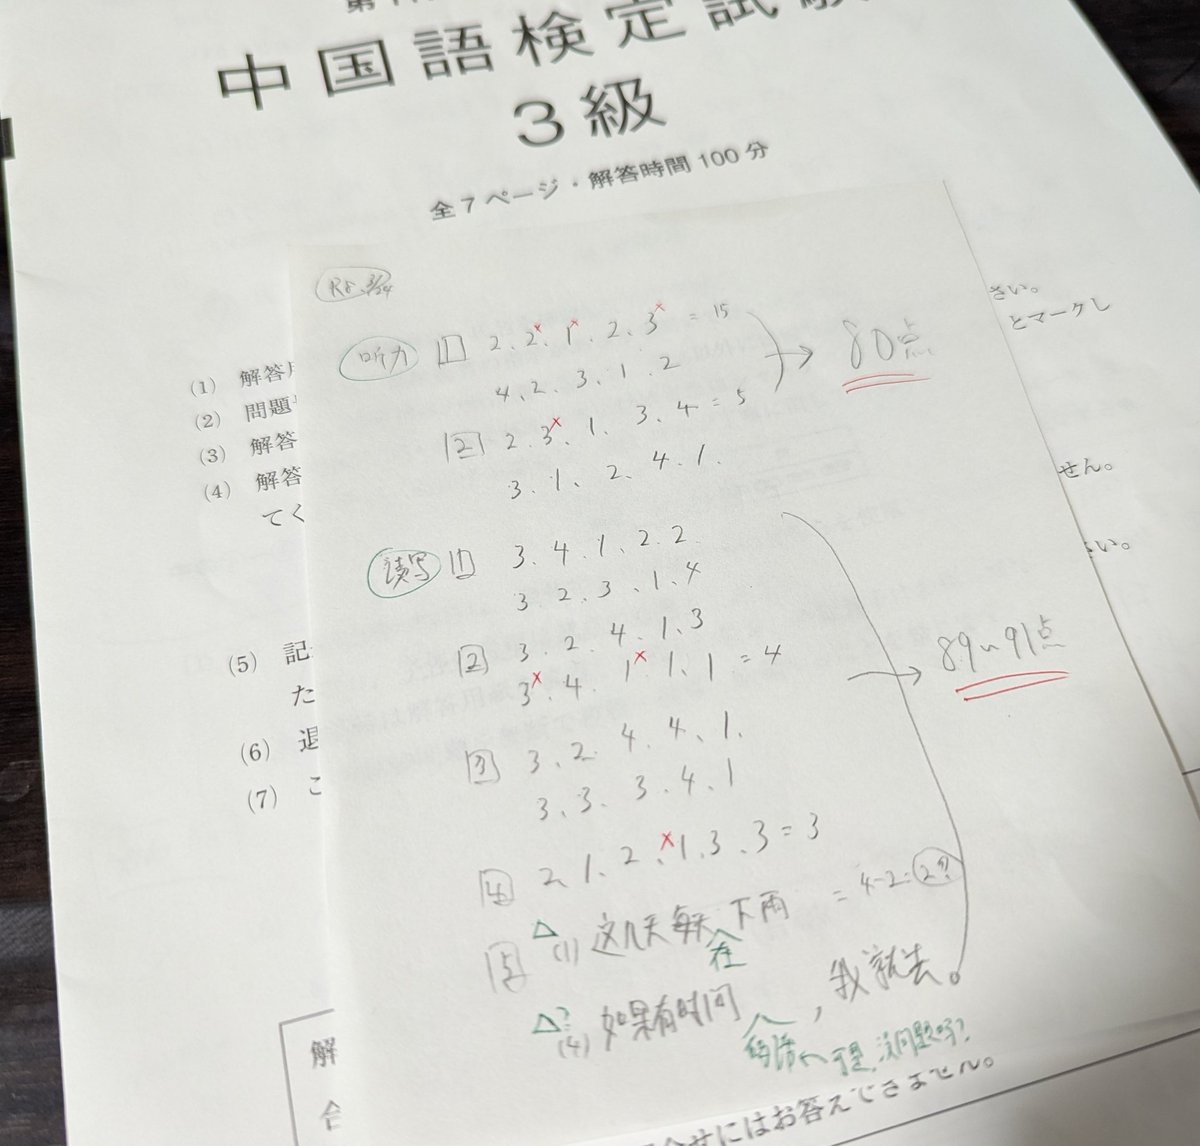 中国語検定試験
3級
全7ページ・解答時間100分
さい。
とマークし
(1) 解答
(2) 問題
(3) 解答
(4) 解答
てく
せん。
(5) 記
た
(6) 退
(7) こ
R8.3/24
听力 1 2. 2×. 1×. 2. 3× = 15
4. 2. 3. 1. 2
2 2. 3×. 1. 3. 4 = 5
3. 1. 2. 4. 1.
→ 80点
読写 1 3. 4. 1. 2. 2
3. 2. 3. 1. 4
2 3. 2. 4. 1. 3
3×. 4. 1×. 1. 1 = 4
3 3. 2. 4. 4. 1.
3. 3. 3. 4. 1
4 2. 1. 2. ×1. 3. 3 = 3
→ 89〜91点
5 △ (1) 这几天每天下雨 = 4-2=2?
在
△? (4) 如果有时间,我就去。
的话
没问题吗?
解
合
にはお答えできません。